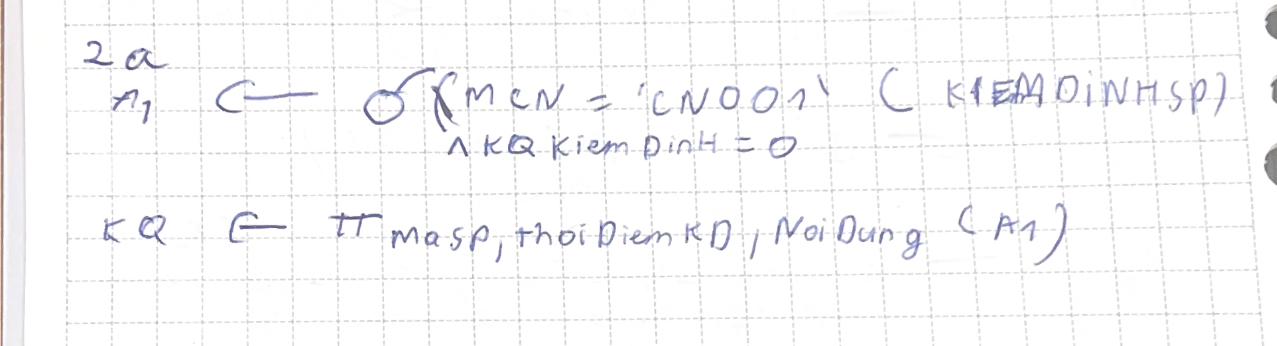 2a
A1 ← σ(MCN = 'CN001' (KIEMDINHSP)
∧ KQ Kiem Dinh = 0
KQ ← π masp, thoiDiemKD, NoiDung (A1)